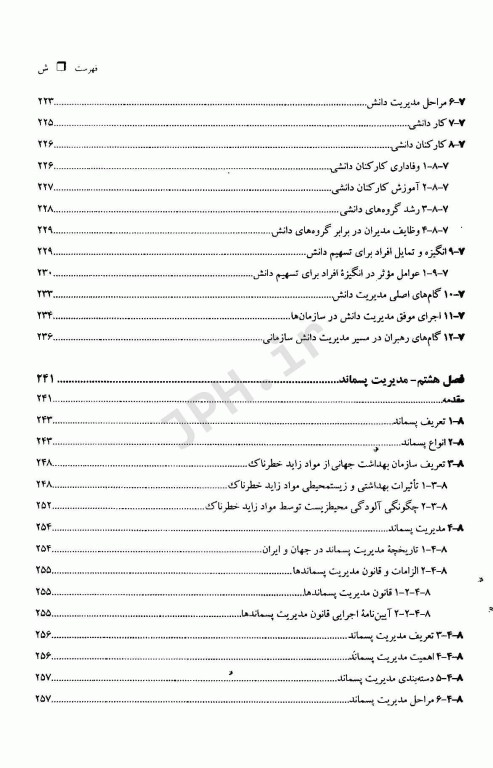 فهرست ❒ ش
۷-۶ مراحل مدیریت دانش ۲۲۳
۷-۷ کار دانشی ۲۲۵
۷-۸ کارکنان دانشی ۲۲۶
۷-۸-۱ وفاداری کارکنان دانشی ۲۲۶
۷-۸-۲ آموزش کارکنان دانشی ۲۲۷
۷-۸-۳ رشد گروه‌های دانشی ۲۲۸
۷-۸-۴ وظایف مدیران در برابر گروه‌های دانش ۲۲۹
۷-۹ انگیزه و تمایل افراد برای تسهیم دانش ۲۲۹
۷-۹-۱ عوامل مؤثر در انگیزهٔ افراد برای تسهیم دانش ۲۳۰
۷-۱۰ گام‌های اصلی مدیریت دانش ۲۳۳
۷-۱۱ اجرای موفق مدیریت دانش در سازمان‌ها ۲۳۴
۷-۱۲ گام‌های رهبران در مسیر مدیریت دانش سازمانی ۲۳۶
فصل هشتم- مدیریت پسماند ۲۴۱
مقدمه ۲۴۱
۸-۱ تعریف پسماند ۲۴۳
۸-۲ انواع پسماند ۲۴۳
۸-۳ تعریف سازمان بهداشت جهانی از مواد زاید خطرناک ۲۴۸
۸-۳-۱ تأثیرات بهداشتی و زیست‌محیطی مواد زاید خطرناک ۲۴۸
۸-۳-۲ چگونگی آلودگی محیط‌زیست توسط مواد زاید خطرناک ۲۵۲
۸-۴ مدیریت پسماند ۲۵۴
۸-۴-۱ تاریخچهٔ مدیریت پسماند در جهان و ایران ۲۵۴
۸-۴-۲ الزامات و قانون مدیریت پسماندها ۲۵۵
۸-۴-۲-۱ قانون مدیریت پسماندها ۲۵۵
۸-۴-۲-۲ آیین‌نامهٔ اجرایی قانون مدیریت پسماندها ۲۵۵
۸-۴-۳ تعریف مدیریت پسماند ۲۵۶
۸-۴-۴ اهمیت مدیریت پسماند ۲۵۶
۸-۴-۵ دسته‌بندی مدیریت پسماند ۲۵۷
۸-۴-۶ مراحل مدیریت پسماند ۲۵۷
JPH.ir